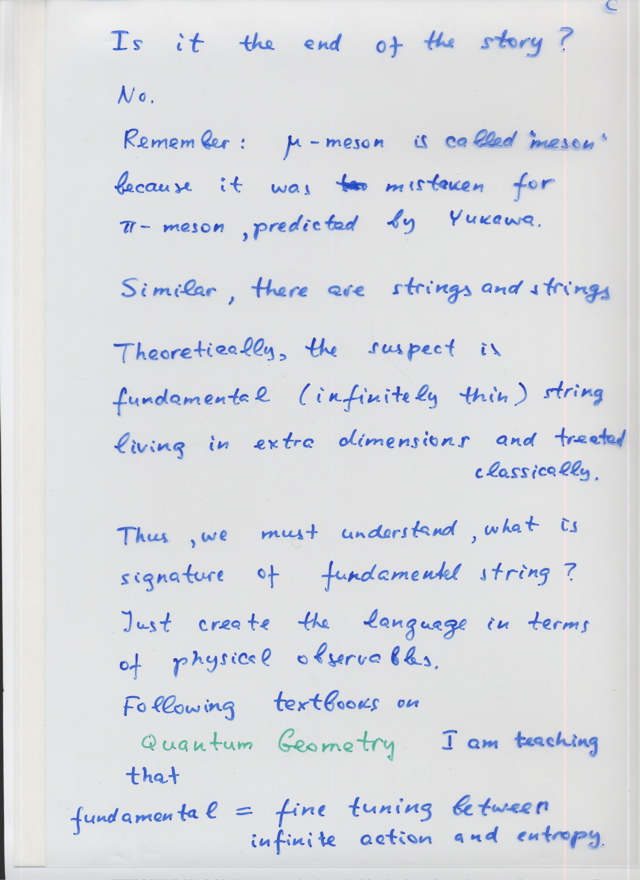 Is it the end of the story?
No.
Remember: μ-meson is called "meson"
because it was mistaken for
π-meson, predicted by Yukawa.
Similar, there are strings and strings
Theoretically, the suspect is
fundamental (infinitely thin) string
living in extra dimensions and treated
classically.
Thus, we must understand, what is
signature of fundamental string?
Just create the language in terms
of physical observables.
Following textbooks on
Quantum Geometry I am teaching
that
fundamental = fine tuning between
infinite action and entropy.